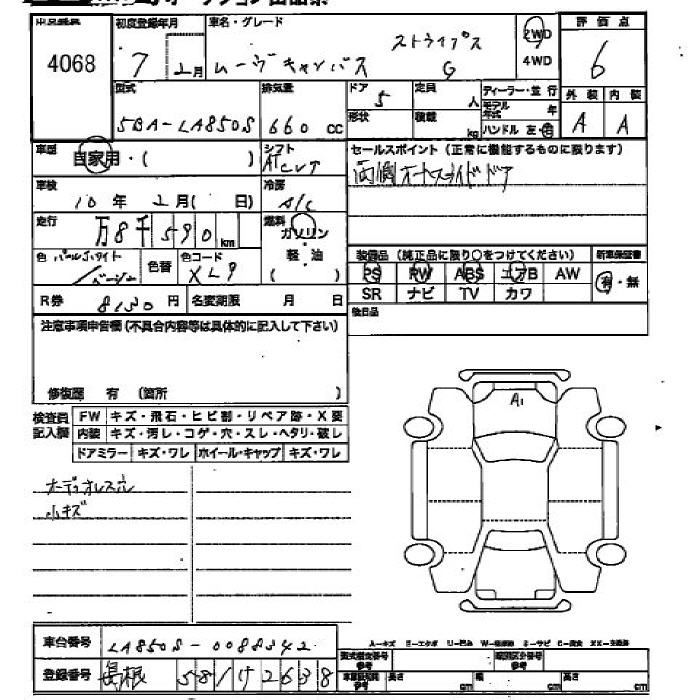 4068
初度登録年月
7 2月
車名・グレード
ストライプス
ムーヴキャンバス G
2WD
4WD
評価点
6
外装 内装
A A
型式
5BA-LA850S
排気量
660 CC
ドア 5
形状
定員 人
積載 kg
ディーラー・並行
モデル年式 年
ハンドル 左・右
車歴
自家用・( )
シフト
AT CVT
セールスポイント(正常に機能するものに限ります)
両側オートスライドドア
車検
10年 2月( 日)
冷房
A/C
走行
万8千590km
燃料
ガソリン
軽・油
( )
色 パールホワイト
/ベージュ
色替
色コード
XL9
装備品(純正品に限り○をつけてください)
新車保証書
PS PW ABS エアB AW
有・無
SR ナビ TV カワ
R券 8130円
名変期限 月 日
後日品
注意事項申告欄(不具合内容等は具体的に記入して下さい)
修復歴 有 (箇所 )
検査員記入欄
FW キズ・飛石・ヒビ割・リペア跡・X要
内装 キズ・汚レ・コゲ・穴・スレ・ヘタリ・破レ
ドアミラー キズ・ワレ ホイール・キャップ キズ・ワレ
オーディオレス穴
小キズ
A1
車台番号
LA850S-0088342
登録番号
島根 58
2638
A-キズ E-エクボ U-凹み
長さ cm 幅 cm 高さ cm